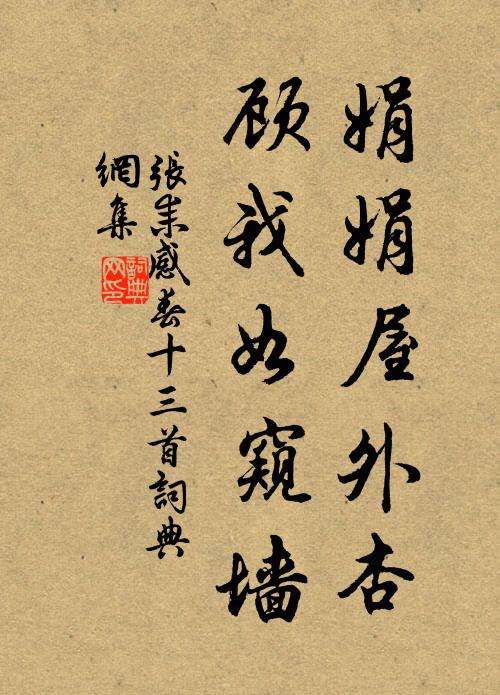 娟娟屋外杏
顾我如窥墙
張耒感春十三首詞典
網集
詞典網印